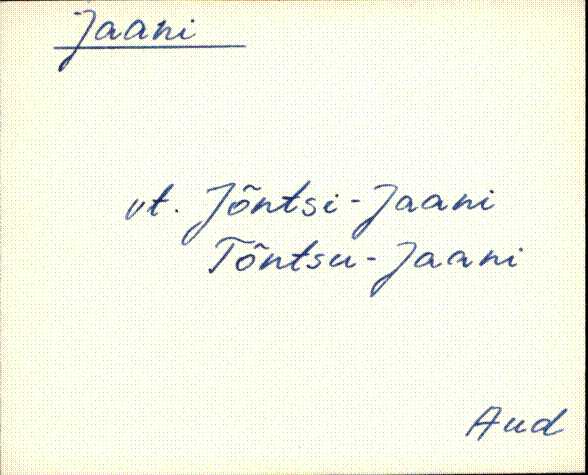 Jaani
vt. Jõntsi-Jaani
Tõntsu-Jaani
Aud